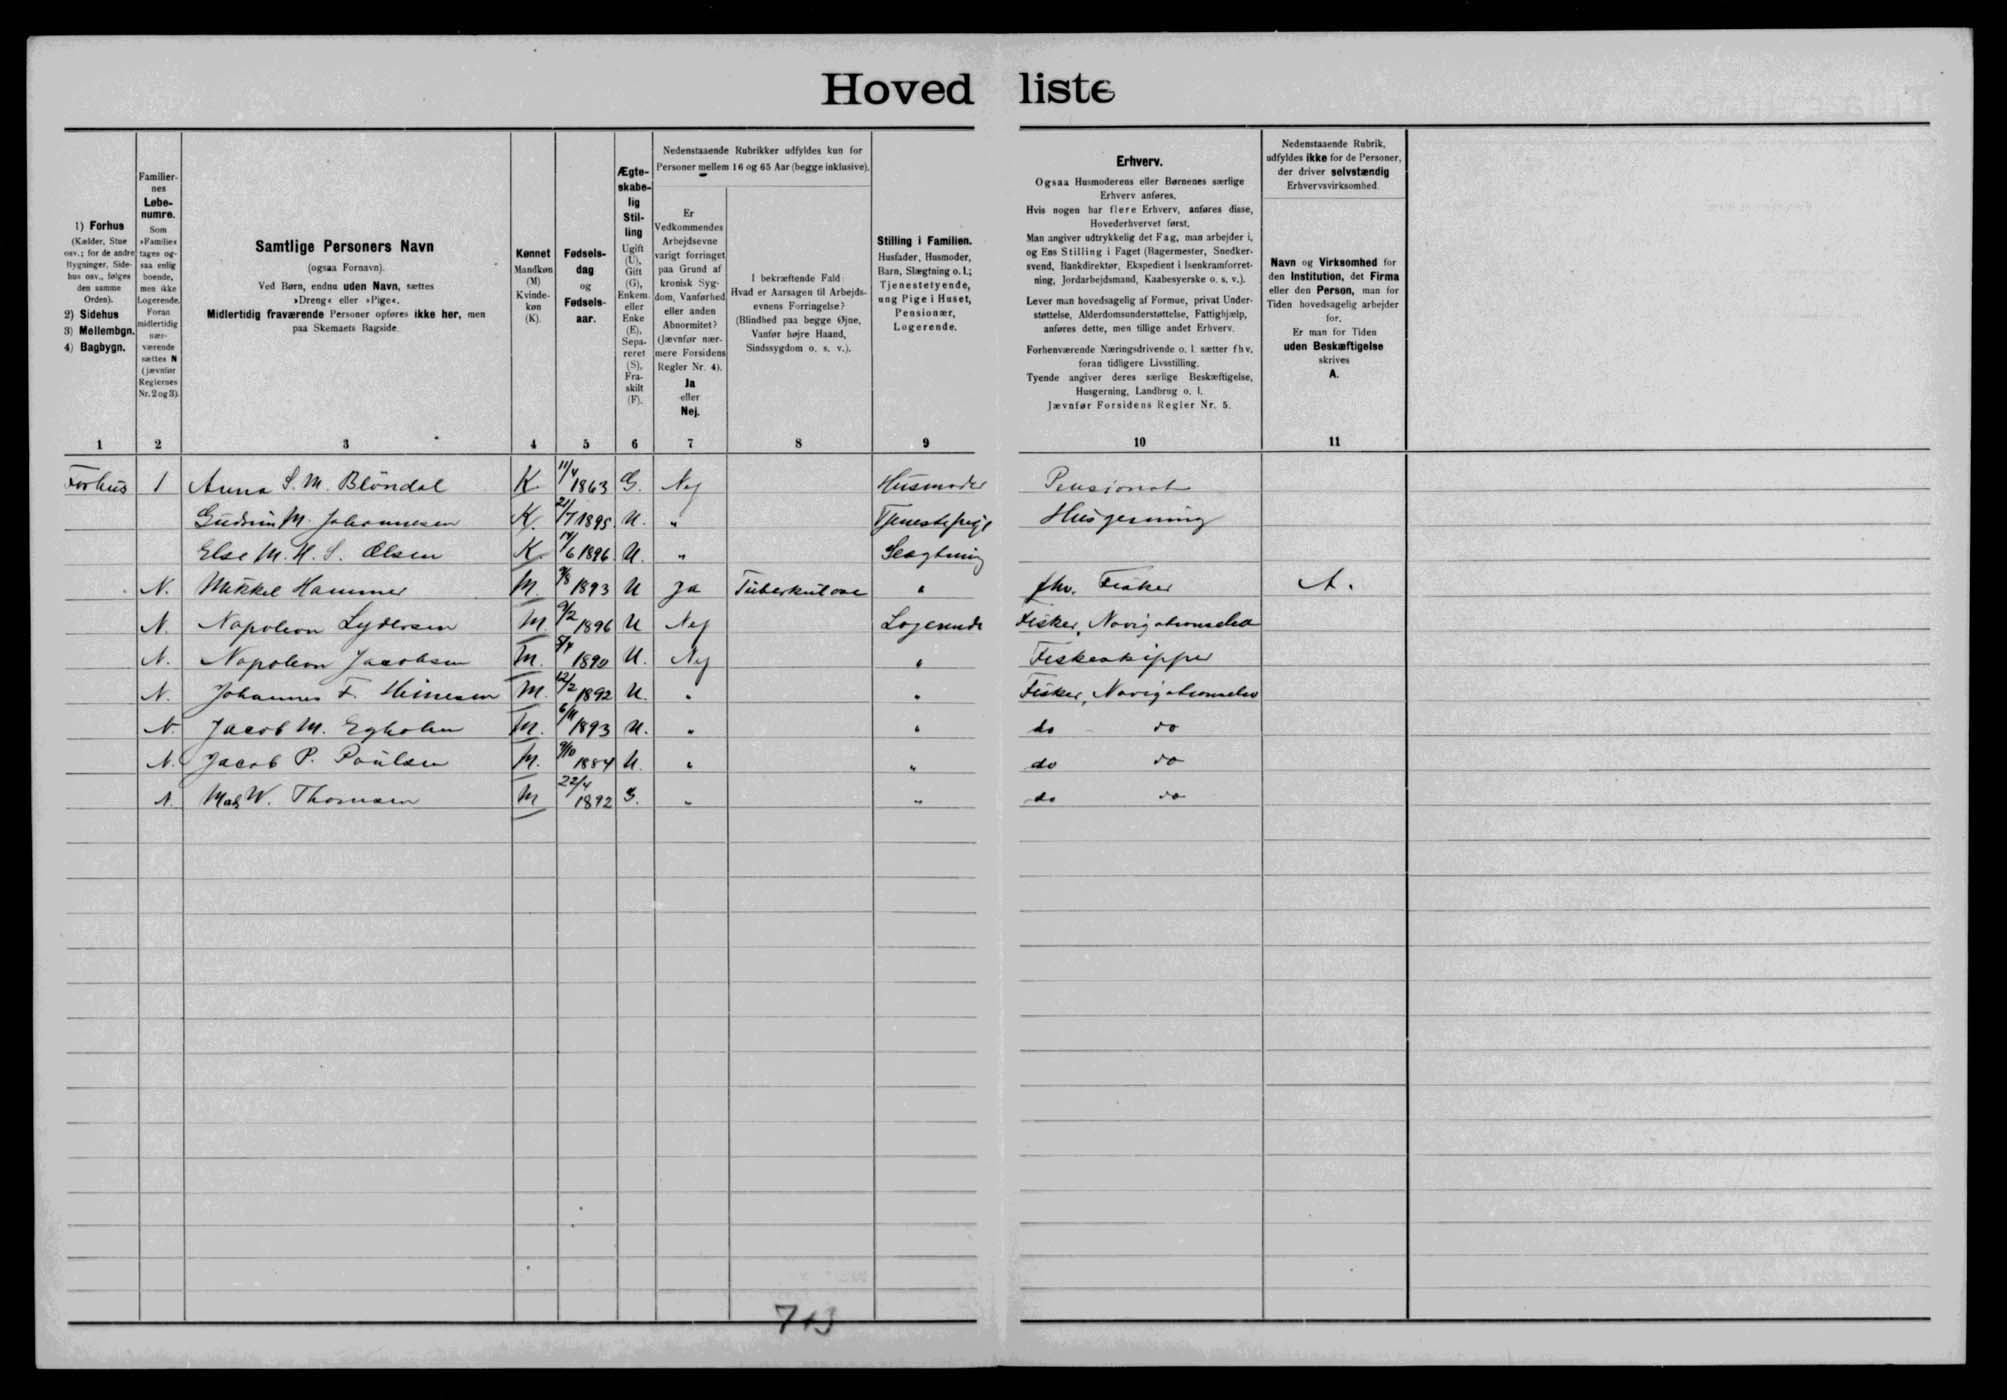 Hovedliste
1) Forhus
(Kælder, Stue
osv.; for de andre
Bygninger, Side-
hus osv., følges
den samme
Orden).
2) Sidehus
3) Mellembgn.
4) Bagbygn.
Familier-
nes
Løbe-
numre.
Som
»Familie«
tages og-
saa enlig
boende,
men ikke
Logerende.
Foran
midlertidig
nær-
værende
sættes N
(jævnfør
Reglernes
Nr. 2 og 3).
Samtlige Personers Navn
(ogsaa Fornavn).
Ved Børn, endnu uden Navn, sættes
»Dreng« eller »Pige«.
Midlertidig fraværende Personer opføres ikke her, men
paa Skemaets Bagside.
Kønnet
Mandkøn
(M)
Kvinde-
køn
(K).
Fødsels-
dag
og
Fødsels-
aar.
Ægte-
skabe-
lig
Stil-
ling
Ugift
(U),
Gift
(G),
Enkem.
eller
Enke
(E),
Sepa-
reret
(S),
Fra-
skilt
(F).
Nedenstaaende Rubrikker udfyldes kun for
Personer mellem 16 og 65 Aar (begge inklusive).
Er
Vedkommendes
Arbejdsevne
varigt forringet
paa Grund af
kronisk Syg-
dom, Vanførhed
eller anden
Abnormitet?
(Jævnfør nær-
mere Forsidens
Regler Nr. 4).
Ja
eller
Nej.
I bekræftende Fald:
Hvad er Aarsagen til Arbejds-
evnens Forringelse?
(Blindhed paa begge Øjne,
Vanfør højre Haand,
Sindssygdom o. s. v.).
Stilling i Familien.
Husfader, Husmoder,
Barn, Slægtning o. l.;
Tjenestetyende,
ung Pige i Huset,
Pensionær,
Logerende.
Erhverv.
Ogsaa Husmoderens eller Børnenes særlige
Erhverv anføres.
Hvis nogen har flere Erhverv, anføres disse,
Hovederhvervet først.
Man angiver udtrykkelig det Fag, man arbejder i,
og Ens Stilling i Faget (Bagermester, Snedker-
svend, Bankdirektør, Ekspedient i Isenkramforret-
ning, Jordarbejdsmand, Kaabesyerske o. s. v.).
Lever man hovedsagelig af Formue, privat Under-
støttelse, Alderdomsunderstøttelse, Fattighjælp,
anføres dette, men tillige andet Erhverv.
Forhenværende Næringsdrivende o. l. sætter fhv.
foran tidligere Livsstilling.
Tyende angiver deres særlige Beskæftigelse,
Husgerning, Landbrug o. l.
Jævnfør Forsidens Regler Nr. 5.
Nedenstaaende Rubrik,
udfyldes ikke for de Personer,
der driver selvstændig
Erhvervsvirksomhed.
Navn og Virksomhed for
den Institution, det Firma
eller den Person, man for
Tiden hovedsagelig arbejder
for.
Er man for Tiden
uden Beskæftigelse
skrives
A.
1 2 3 4 5 6 7 8 9 10 11
Forhus 1 Anna S. M. Blöndal K. 11/4 1863 G. Nej Husmoder Pensionat
Gudrun M. Johannesen K. 21/7 1895 U. " Tjenestepige Husgerning
Else M. H. S. Olsen K. 14/6 1896 U. " Slægtning
N. Mikkel Hammer M. 9/8 1893 U Ja Tuberkulose " fhv. Fisker A.
N. Napoleon Lydersen M. 9/2 1896 U Nej Logerende Fisker, Navigationselev
N. Napoleon Jacobsen M. 8/4 1890 U. Nej " Fiskeskipper
N. Johannes F. Heinesen M. 12/2 1892 U. " " Fisker, Navigationselev
N. Jacob M. Egholm M. 6/11 1893 U. " " do do
N. Jacob P. Poulsen M. 9/10 1884 U. " " do do
N. Mads W. Thomsen M 22/4 1892 G. " " do do
713